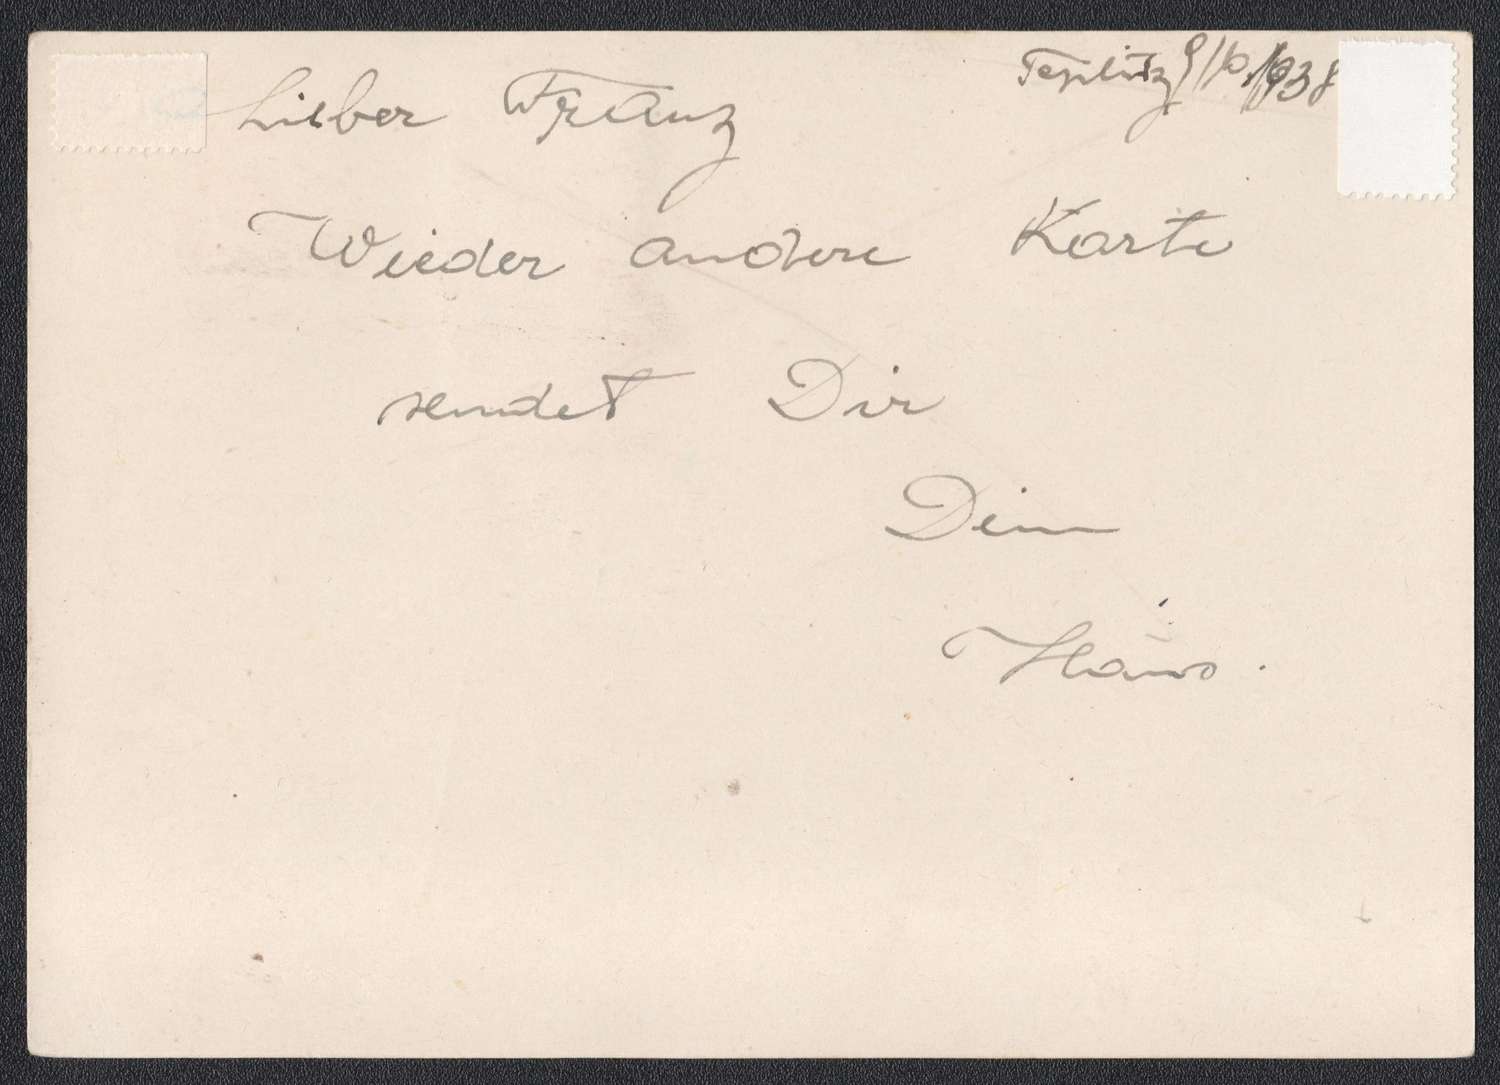 Teplitz 9/6. 1938
Lieber Franz
Wieder andere Karte
sendet Dir
Dein
Hans.